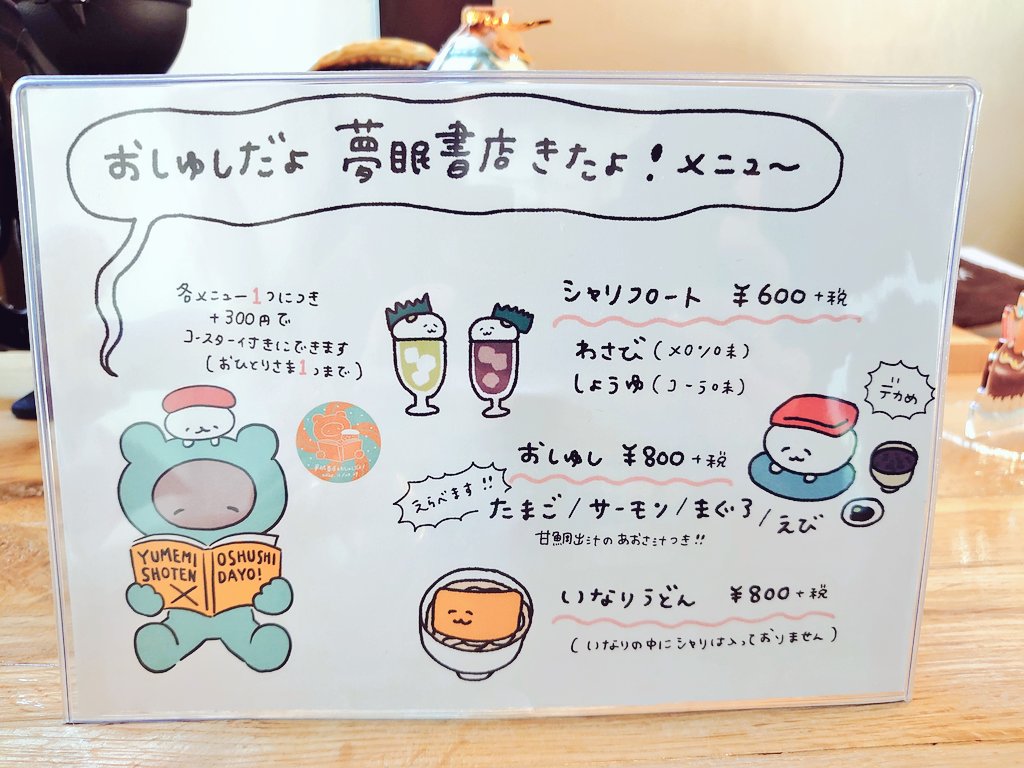 おしゅしだよ 夢眠書店きたよ！メニュー〜
各メニュー1つにつき
+300円で
コースター付きにできます
(おひとりさま1つまで)
シャリフロート ¥600+税
わさび(メロン味)
しょうゆ(コーラ味)
デカめ
おしゅし ¥800+税
えらべます!!
たまご/サーモン/まぐろ/えび
甘鯛出汁のあおさ汁つき!!
YUMEMI SHOTEN
×
OSHUSHI DAYO!
いなりうどん ¥800+税
(いなりの中にシャリは入っておりません)